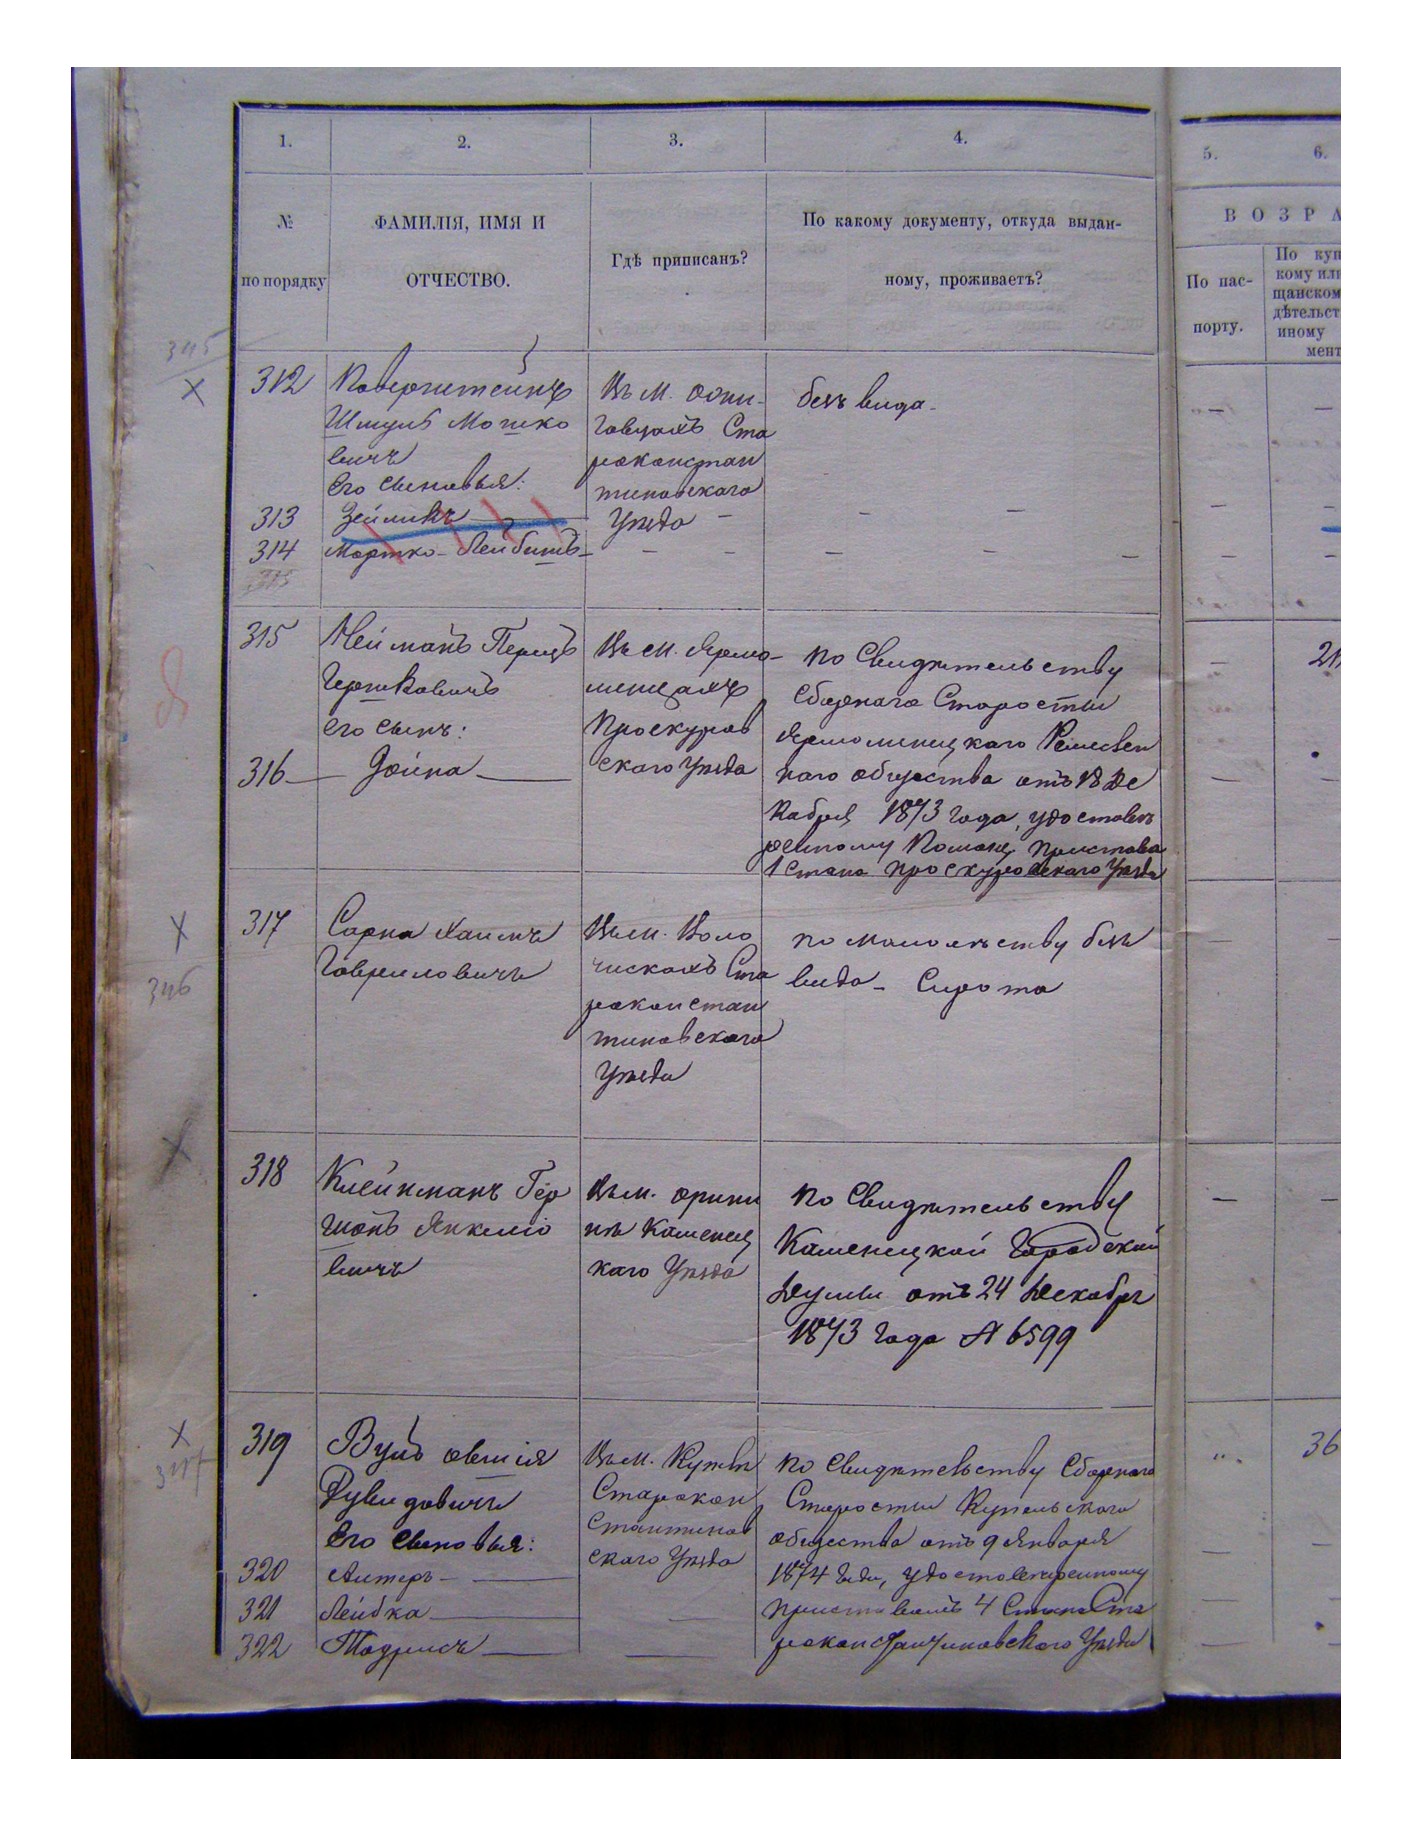 1.
2.
3.
4.
5.
6.
№
по порядку
ФАМИЛІЯ, ИМЯ И
ОТЧЕСТВО.
Гдѣ приписанъ?
По какому документу, откуда выдан-
ному, проживаетъ?
ВОЗРА
По пас-
порту.
По куп
кому или
щанском
дѣтельст
иному
мент
345
312
Шмуль Мошко
вичъ
Его сыновья:
Въ м.
Ста
роконстан
тиновскаго
Уѣзда
безъ вида
313
Зейликъ
314
Мортко-Лейбишъ
315
Нейманъ Перецъ
Гершковичъ
его сынъ:
Въ м. Ярмо-
линцахъ
Проскуров
скаго Уѣзда
По Свидѣтельству
Сборнаго Старосты
Ярмолинецкаго Ремеслен
наго общества отъ 18 Де
кабря 1873 года, удостовѣ
ренному Помощ. Пристава
1 Стана Проскуровскаго Уѣзда
21
316
Дойна
317
Хаимъ
Гавриловичъ
Въ м. Воло
чискахъ Ста
роконстан
тиновскаго
Уѣзда
по малолѣтству безъ
вида - Сирота
346
318
Клейнманъ Гер
шонъ Янкеліо
вичъ
Въ м. Орини
нѣ Каменец
каго Уѣзда
По Свидѣтельству
Каменецкой Городской
Думы отъ 24 Декабря
1873 года № 6599
347
319
Вулъ Овшія
Дувидовичъ
Его сыновья:
Въ м.
Старокон
стантинов
скаго Уѣзда
По Свидѣтельству Сборнаго
Старосты Купельскаго
общества отъ 9 Января
1874 года, удостовѣренному
Приставомъ 4 Стана Ста
роконстантиновскаго Уѣзда
36
320
Алтеръ
321
Лейбка
322
Тодрисъ